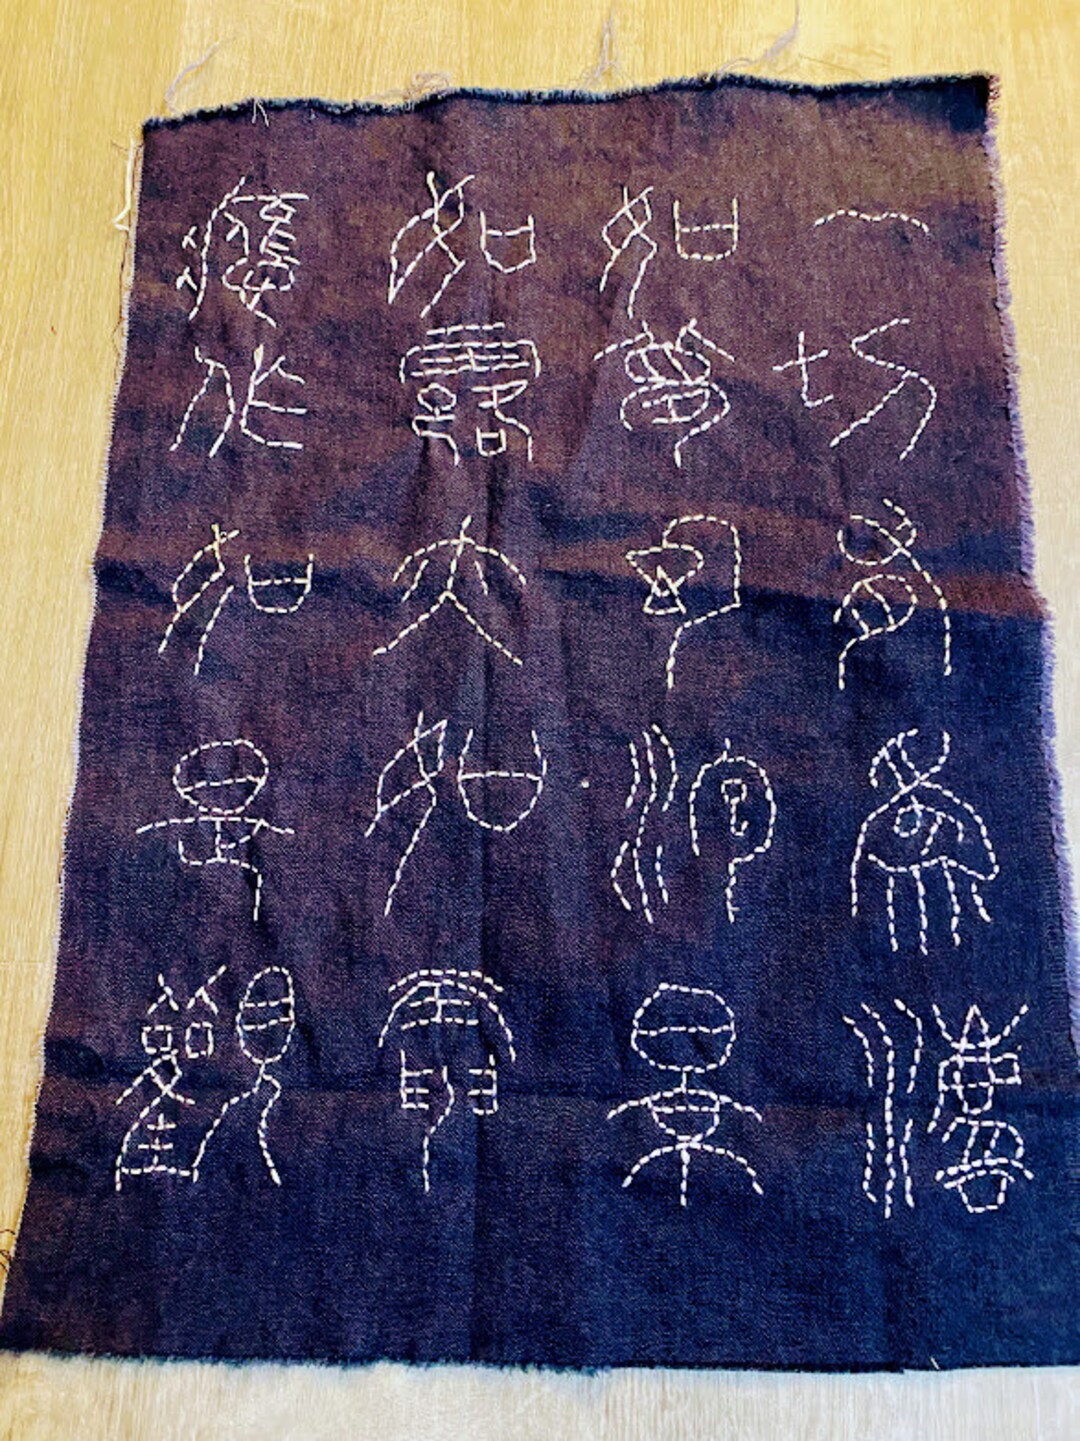 一切有為灋
如夢幻泡景
如露亦如電
應作如是觀